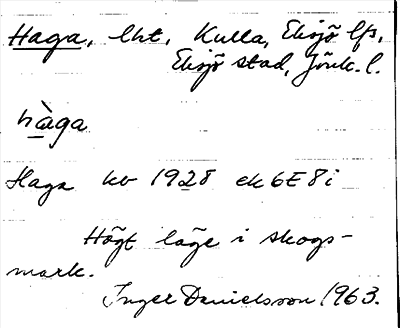 Haga, lht, Kulla, Eksjö lfs,
Eksjö stad, Jönk. l.
hàga
Haga kv 1928 ek 6E8i
Högt läge i skogs-
mark.
Inger Danielsson 1963.